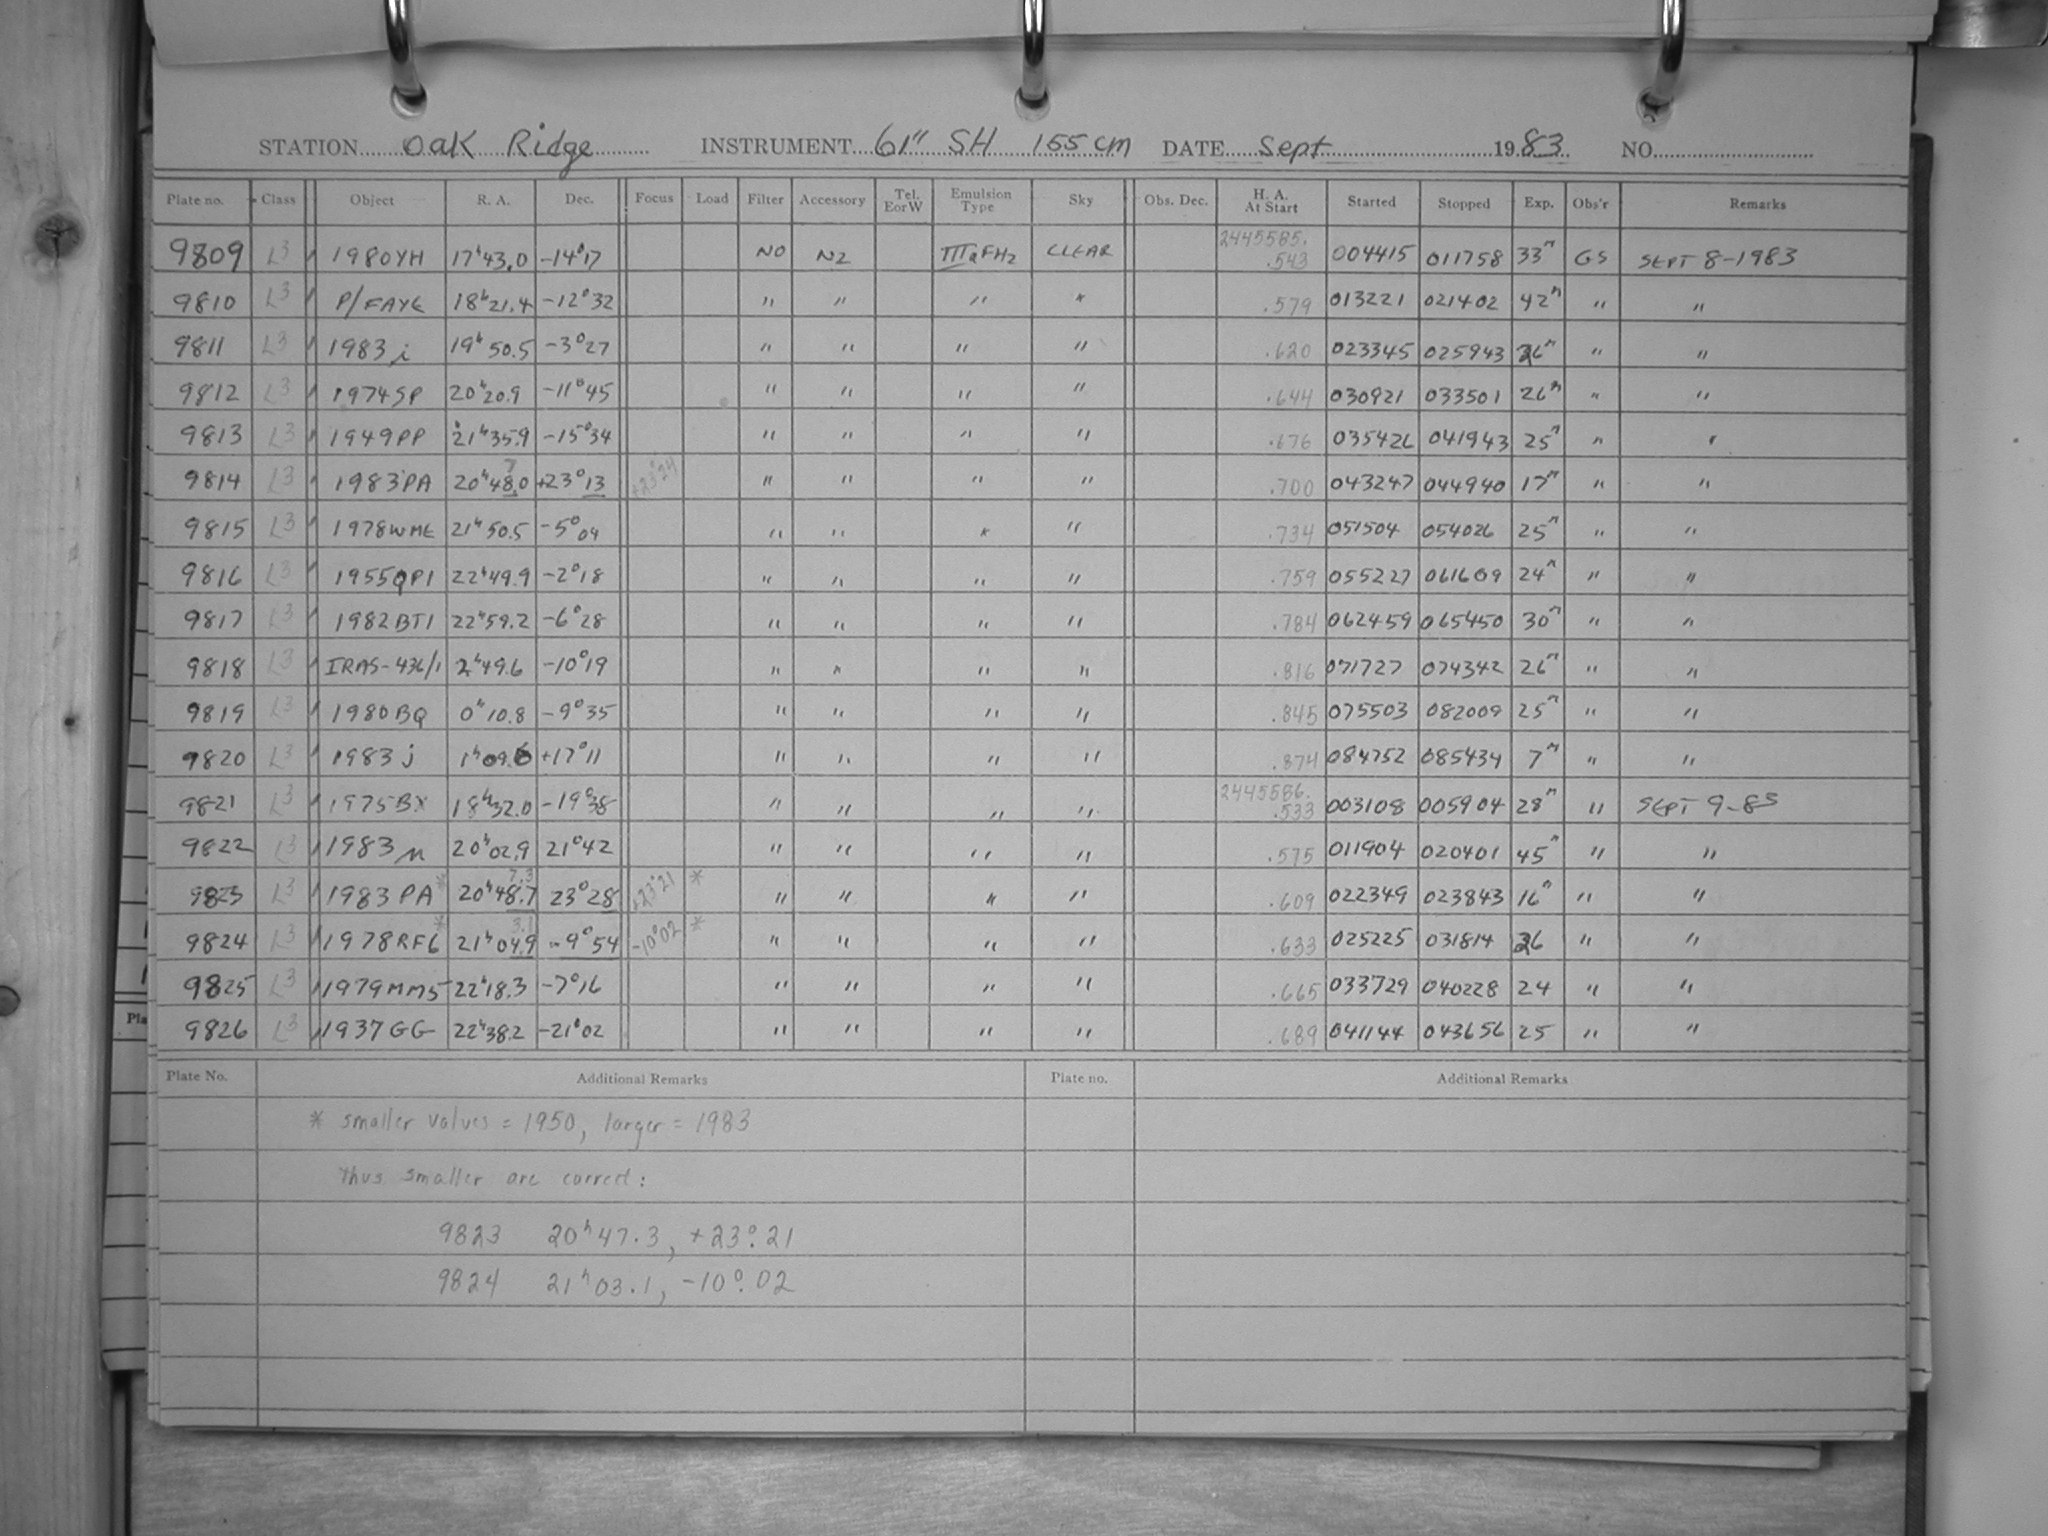 STATION Oak Ridge INSTRUMENT 61" SH 155 cm DATE Sept 1983 NO.
Plate no. Class Object R. A. Dec. Focus Load Filter Accessory Tel. E or W Emulsion Type Sky Obs. Dec. H. A. At Start Started Stopped Exp. Obs'r Remarks
9809 L3 1980YH 17ʰ43.0 -14°17 NO N2 IIIaFH2 CLEAR 2445585. .543 004415 011758 33ᵐ GS SEPT 8-1983
9810 L3 P/FAYE 18ʰ21.4 -12°32 " " " " .579 013221 021402 42ᵐ " "
9811 L3 1983 i 19ʰ50.5 -3°27 " " " " .620 023345 025943 26ᵐ " "
9812 L3 1974SP 20ʰ20.9 -11°45 " " " " .644 030921 033501 26ᵐ " "
9813 L3 1949PP 21ʰ35.9 -15°34 " " " " .676 035426 041943 25ᵐ " "
9814 L3 1983PA 20ʰ48.0 7 +23°13 +23°24 " " " " .700 043247 044940 17ᵐ " "
9815 L3 1978WME 21ʰ50.5 -5°04 " " " " .734 051504 054026 25ᵐ " "
9816 L3 1955QP1 22ʰ49.9 -2°18 " " " " .759 055227 061609 24ᵐ " "
9817 L3 1982BT1 22ʰ59.2 -6°28 " " " " .784 062459 065450 30ᵐ " "
9818 L3 IRAS-436/1 2ʰ49.6 -10°19 " " " " .816 071727 074342 26ᵐ " "
9819 L3 1980BQ 0ʰ10.8 -9°35 " " " " .845 075503 082009 25ᵐ " "
9820 L3 1983 j 1ʰ09.6 +17°11 " " " " .874 084752 085434 7ᵐ " "
9821 L3 1975BX 18ʰ32.0 -19°38 " " " " 2445586. .533 003108 005904 28ᵐ " SEPT 9-83
9822 L3 1983 n 20ʰ02.9 21°42 " " " " .575 011904 020401 45ᵐ " "
9823 L3 1983 PA* 20ʰ48.7 7.3 23°28 +23°21 * " " " " .609 022349 023843 16ᵐ " "
9824 L3 1978RF6* 21ʰ04.9 3.1 -9°54 -10°02 * " " " " .633 025225 031814 26 " "
9825 L3 1979MM5 22ʰ18.3 -7°16 " " " " .665 033729 040228 24 " "
9826 L3 1937GG 22ʰ38.2 -21°02 " " " " .689 041144 043656 25 " "
Plate No. Additional Remarks Plate no. Additional Remarks
* smaller values = 1950, larger = 1983
Thus smaller are correct:
9823 20ʰ47.3, +23°.21
9824 21ʰ03.1, -10°.02
Pla